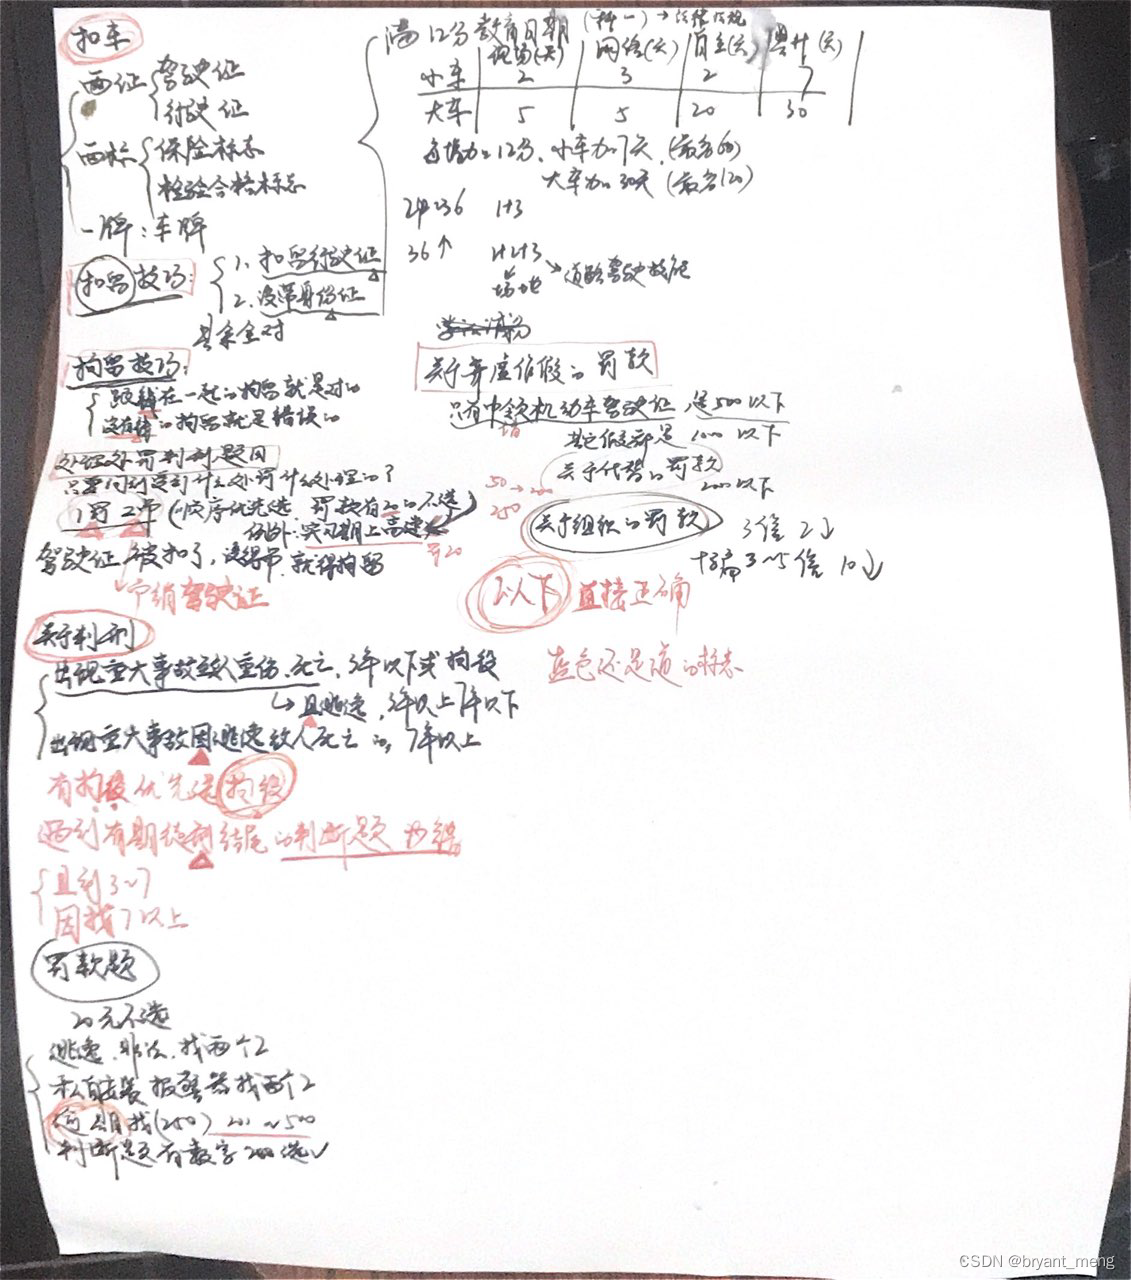 扣车
两证 驾驶证
行驶证
两标 保险标志
检验合格标志
一牌：车牌
扣留技巧：
1. 扣留行驶证
2. 没带身份证
其余全对
拘留技巧：
跟钱在一起的拘留就是对的
没有钱的拘留就是错误的
处理处罚判刑题目
只要问到受到什么处罚什么处理的？
1罚 2吊 (顺序优先选 罚款有20的不选)
例外：实习期上高速
罚20
驾驶证被扣了，没得吊，就得拘留
吊销驾驶证
关于判刑
出现重大事故致人重伤、死亡，3年以下或拘役
且逃逸，3年以上7年以下
出现重大事故因逃逸致人死亡的，7年以上
有拘役优先选拘役
遇到有期徒刑结尾的判断题 为错
且到3~7
因找7以上
罚款题
20元不选
逃逸、非法，找两个2
私自安装报警器找两个2
找(250) 201~500
判断题有数字200选√
满12分教育日期 (科一)→法律法规
现场(天) 网络(天) 自主(天) 累计(天)
小车 2 3 2 7
大车 5 5 20 30
每增加12分、小车加7天 (最多60)
大车加30天 (最多120)
24~36 1+3
36↑ 1+2+3
场地 →道路驾驶技能
学法减分
关于弄虚作假的罚款
只有申领机动车驾驶证 是500以下
其它假都是 1000以下
关于代替的罚款
200以下
50→200
250
关于组织的罚款 3倍 2↓
3~5倍 10↓
2以下 直接正确
蓝色还是道的标志
CSDN @bryant_meng